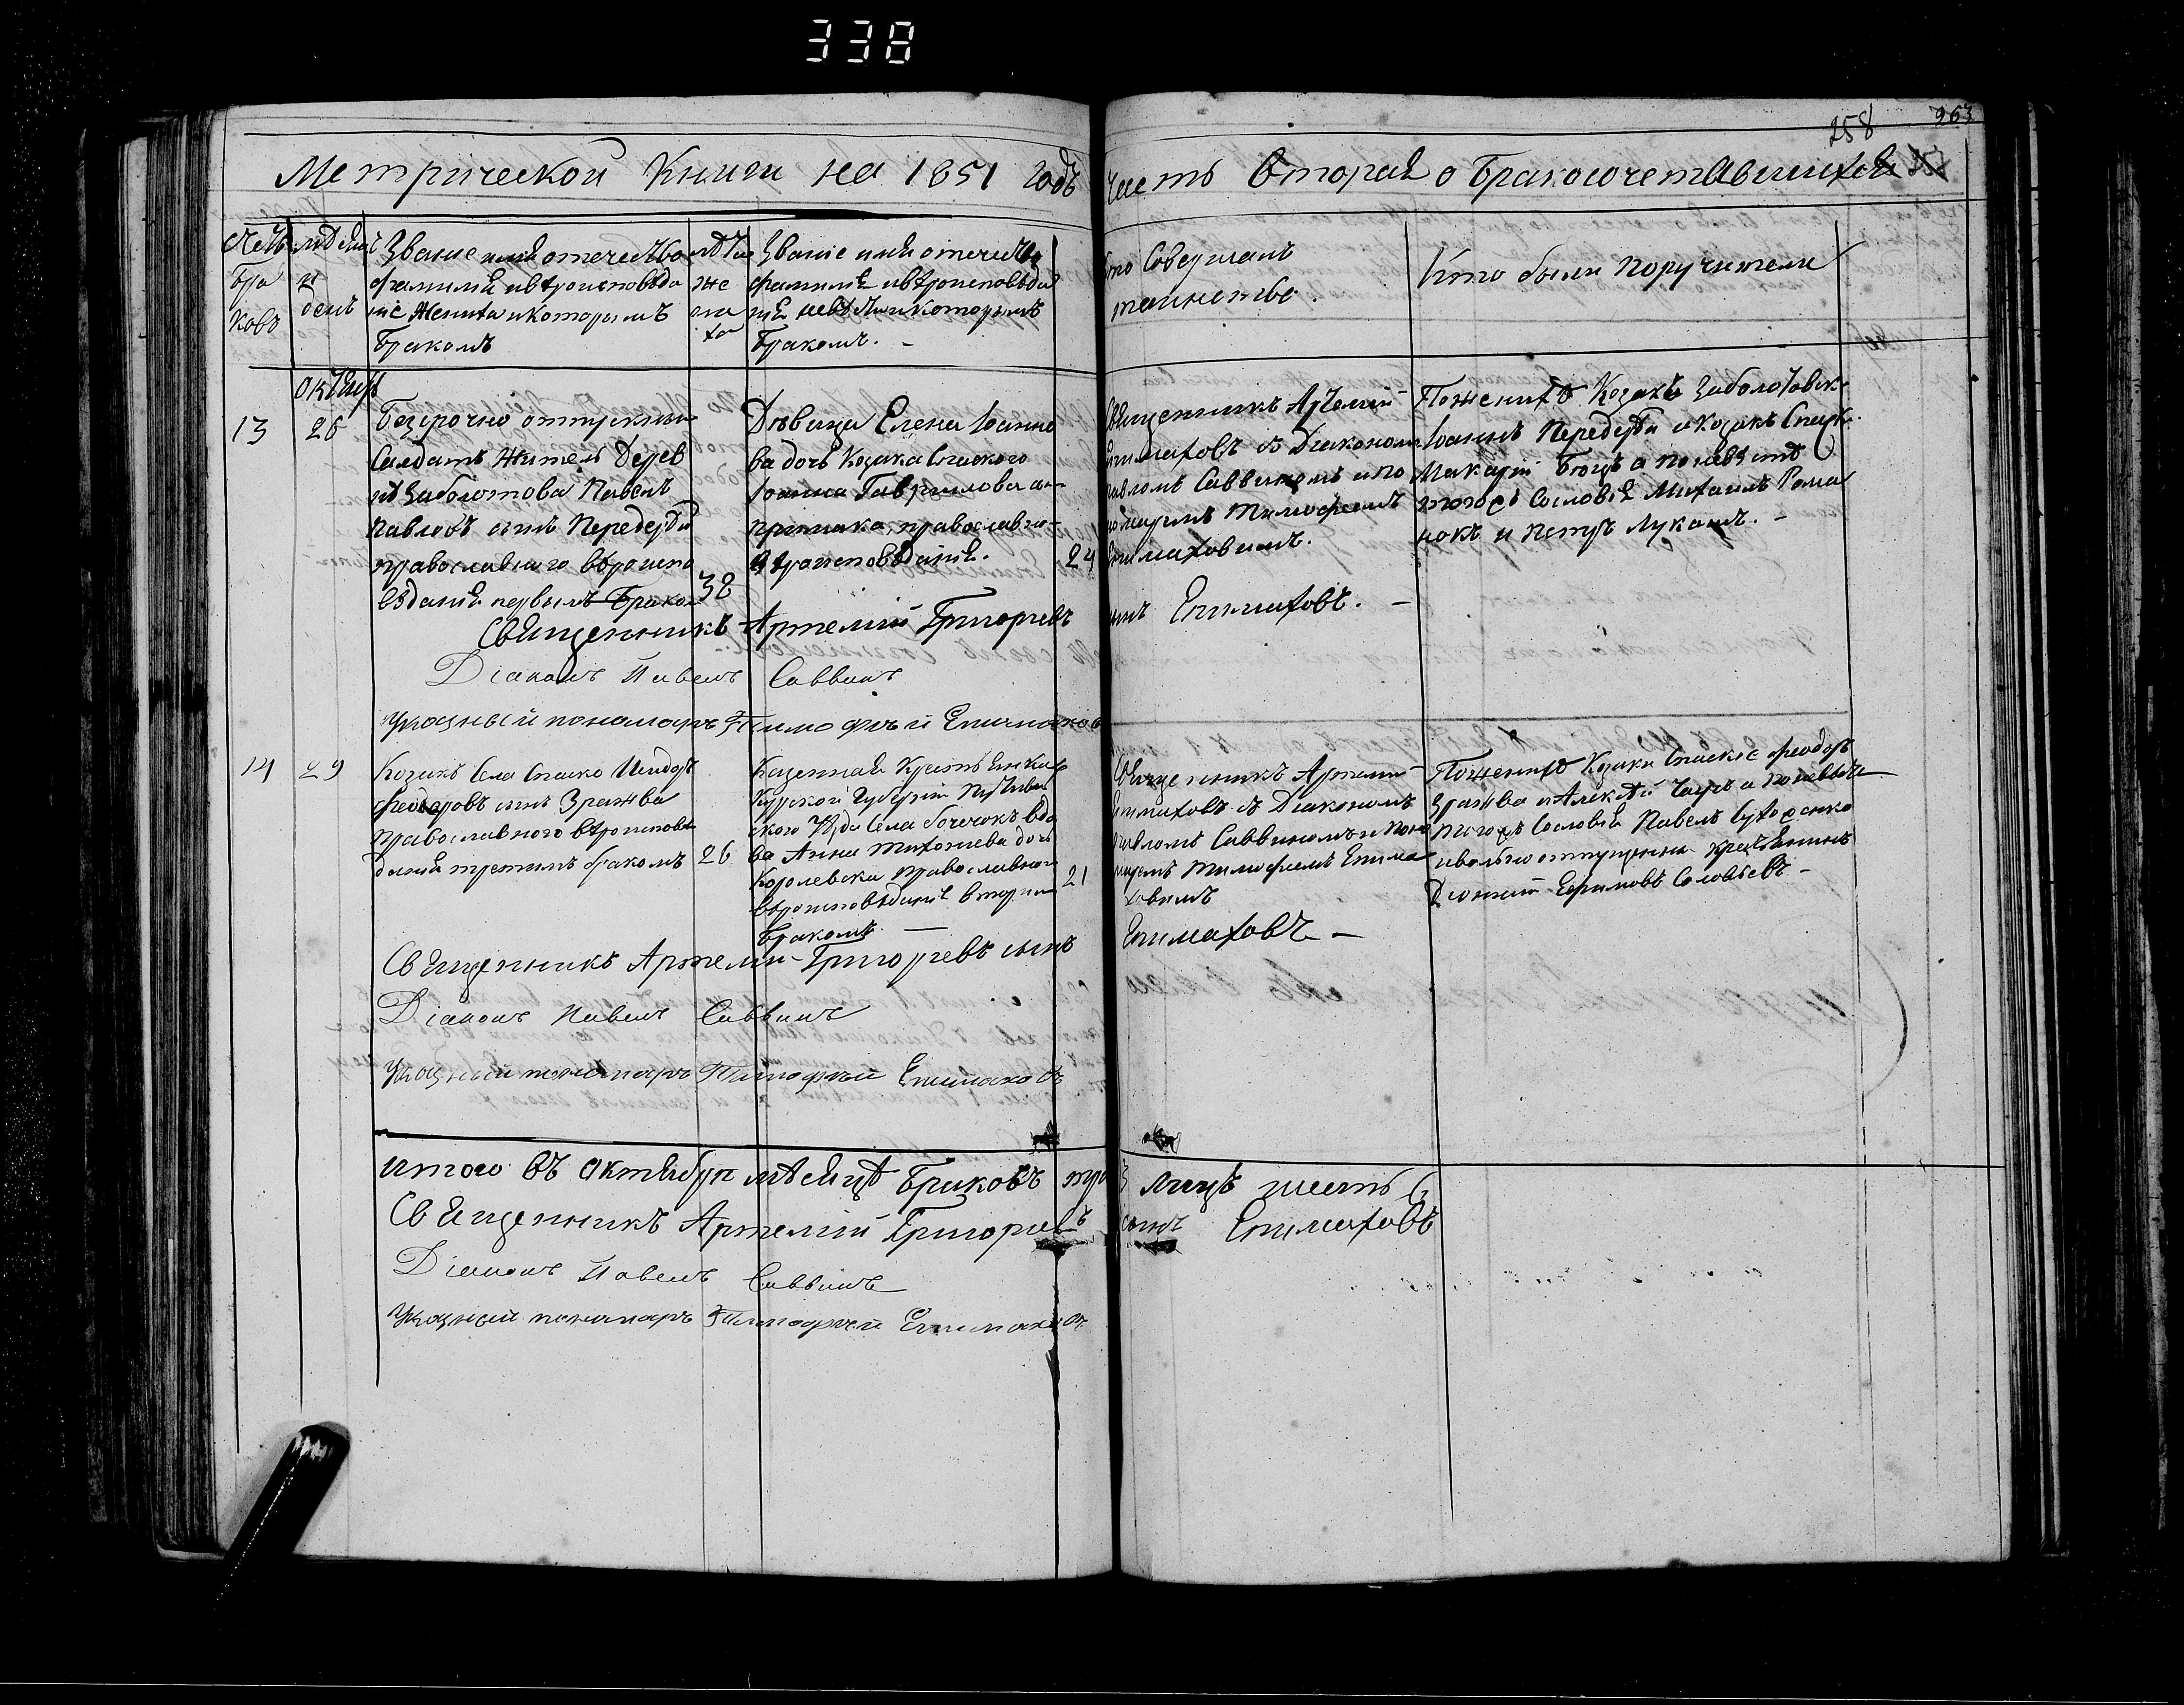 338
258 263
Метрической Книги на 1851 годъ
Часть Вторая о Бракосочетавшихся
Счетъ
Бра
ковъ
и
день
Званіе имя отечество
фамилія и вѣроисповѣда
ніе Жениха и которымъ
Бракомъ
лѣта
же
ни
ха
Званіе имя отечество
фамилія и вѣроисповѣда
ніе невѣсты и которымъ
Бракомъ.
Кто Совершалъ
таинство.
Кто были поручители
Октября
13
26
Безсрочно отпускный
Салдатъ Житель Дерев
нѣ Заболотова Павелъ
Павловъ сынъ Передерѣй
православнаго вѣроиспо
вѣданія первымъ Браком
32
Дѣвица Елена Іоанно
ва дочь Козака Спаского
Іоанна Гаврилова сы-
православно-
вѣроисповѣданія.
24
Священникъ Артемій
Епимаховъ съ Діакономъ
Павломъ Саввинымъ и по
номаремъ Тимофеемъ
Епимаховимъ.
По женихѣ Козакъ Заболотовск.
Іоаннъ Передерѣй и Козакъ Спаск.
Макарій а по невѣстѣ
тогожъ Сословія Михаилъ Рома
нокъ и Петръ Лукашъ.
Священникъ Артемій Григорьевъ
сынъ Епимаховъ.
Діаконъ Павелъ Саввинъ
Указный пономарь Тимофѣй Епимаховъ
14
29
Козакъ Села Спаско Исидоръ
Феодоровъ сынъ Зражва
православного вѣроиспове
данія третимъ бракомъ
26
Казенная Крестьянка
Курской Губерніи Путивл
ского Уѣзда Села Бочечокъ вдо
ва Анна Тихонова дочь
Королевска православнаго
вѣроисповѣданіе вторым
Бракомъ.
21
Священникъ Артемій
Епимаховъ съ Діакономъ
Павломъ Саввинымъ и поно
маремъ Тимофеемъ Епима
ховимъ
По женихѣ Козаки Спаскіе Феодоръ
Зражва и Алексѣй а по невѣстѣ
тогожъ Сословія Павелъ Суходенко
и вольно отпущенны Крестьянинъ
Діонисій Ефимовъ Соловьевъ
Священникъ Артемій Григорьевъ сынъ
Епимаховъ
Діаконъ Павелъ Саввинъ
Указный пономарь Тимофѣй Епимаховъ
Итого въ Октябри мѣсяцѣ Браковъ три 3 лицъ шесть 6
Священникъ Артемій Григорьевъ сынъ Епимаховъ
Діаконъ Павелъ Саввинъ
Указный пономарь Тимофѣй Епимаховъ